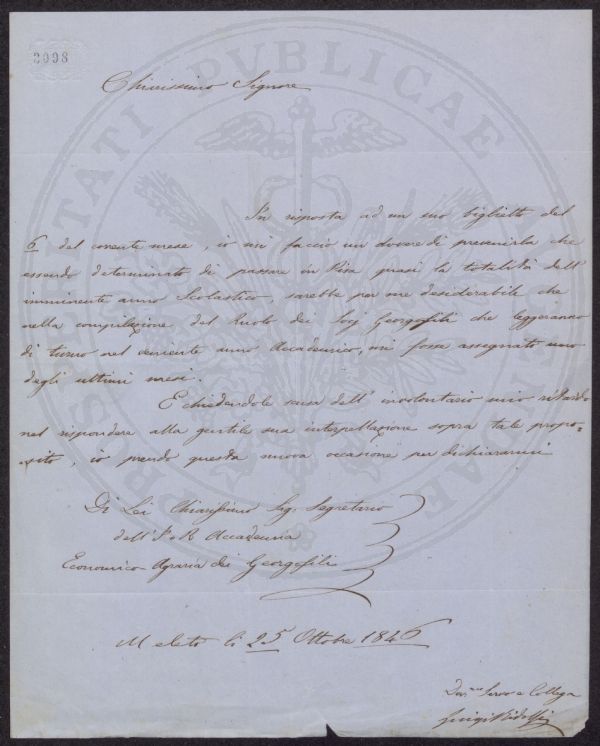 3998
PROSPERITATI PUBLICAE AUGENDAE
Chiarissimo Signore
In risposta ad un suo biglietto del
6 del corrente mese, io mi faccio un dovere di prevenirla che
essendo determinato di passare in Pisa quasi la totalità dell'
imminente anno Scolastico, sarebbe per me desiderabile che
nella compilazione del Ruolo dei Socj Georgofili che leggeranno
di turno nel veniente anno Accademico, mi fosse assegnato uno
degli ultimi mesi.
E chiedendole scusa dell' involontario mio ritardo
nel rispondere alla gentile sua interpellazione sopra tale propo=
=sito, io prendo questa nuova occasione per dichiararmi
Di Lei Chiarissimo Sig. Segretario
dell' I. e R. Accademia
Economico-Agraria dei Georgofili
Meleto li 25 Ottobre 1846
Dev.mo Servo e Collega
Luigi Ridolfi